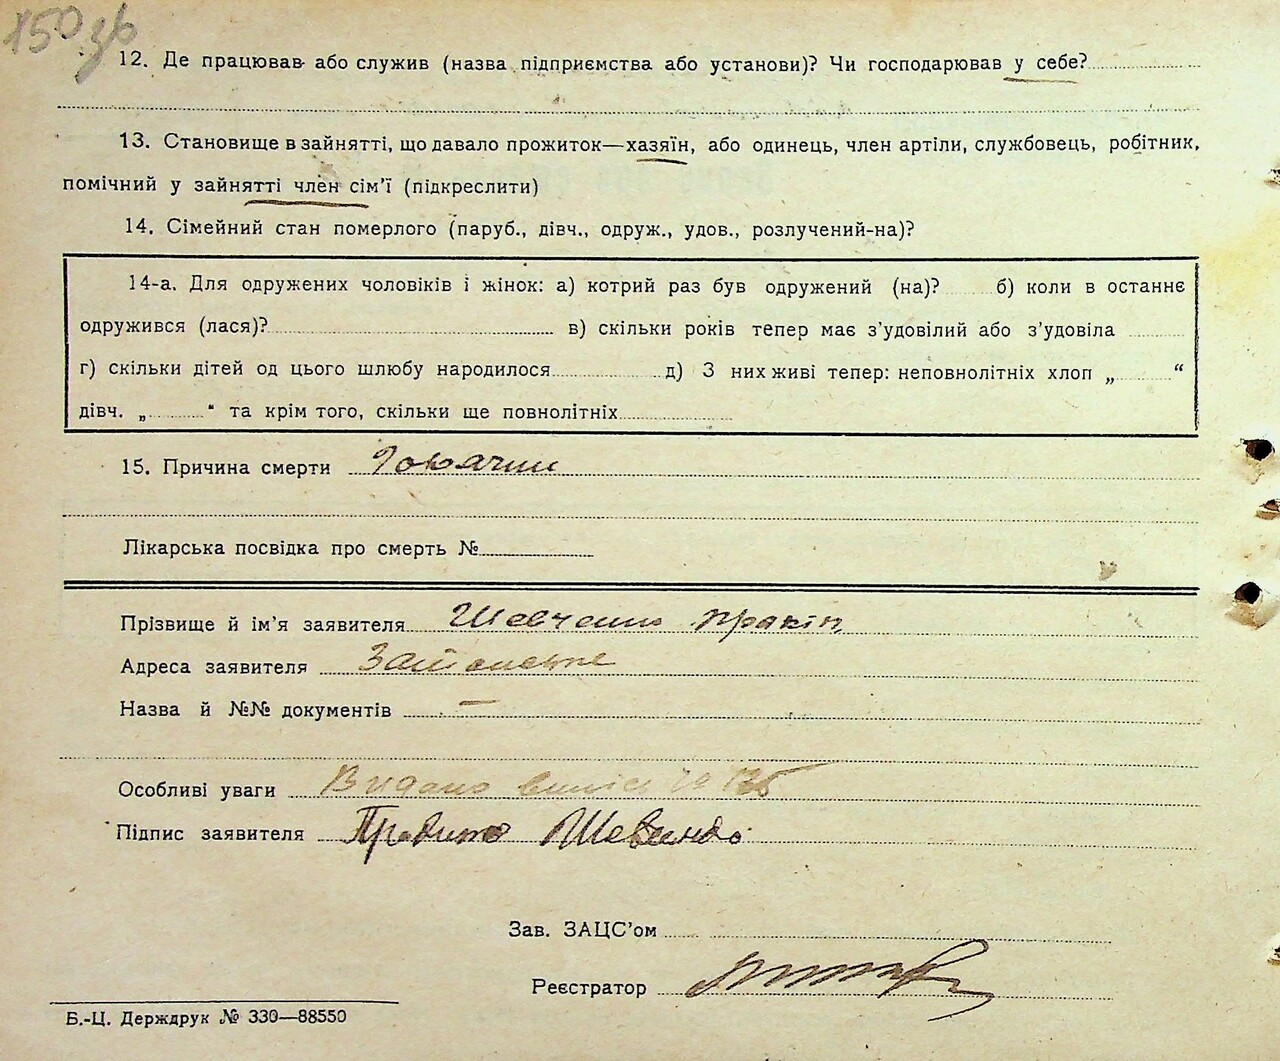 150 зв
12. Де працював або служив (назва підприємства або установи)? Чи господарював у себе?
13. Становище в зайнятті, що давало прожиток—хазяїн, або одинець, член артіли, службовець, робітник,
помічний у зайнятті член сім'ї (підкреслити)
14. Сімейний стан померлого (паруб., дівч., одруж., удов., розлучений-на)?
14-а. Для одружених чоловіків і жінок: а) котрий раз був одружений (на)? б) коли в останнє
одружився (лася)? в) скільки років тепер має з'удовілий або з'удовіла
г) скільки дітей од цього шлюбу народилося д) З них живі тепер: неповнолітніх хлоп „ “
дівч. „ “ та крім того, скільки ще повнолітніх
15. Причина смерти
Лікарська посвідка про смерть №
Прізвище й ім'я заявителя Шевченко Пракіп
Адреса заявителя
Назва й №№ документів —
Особливі уваги Видано випис №
Підпис заявителя Шевченко
Зав. ЗАЦС'ом
Реєстратор
Б.-Ц. Держдрук № 330—88550